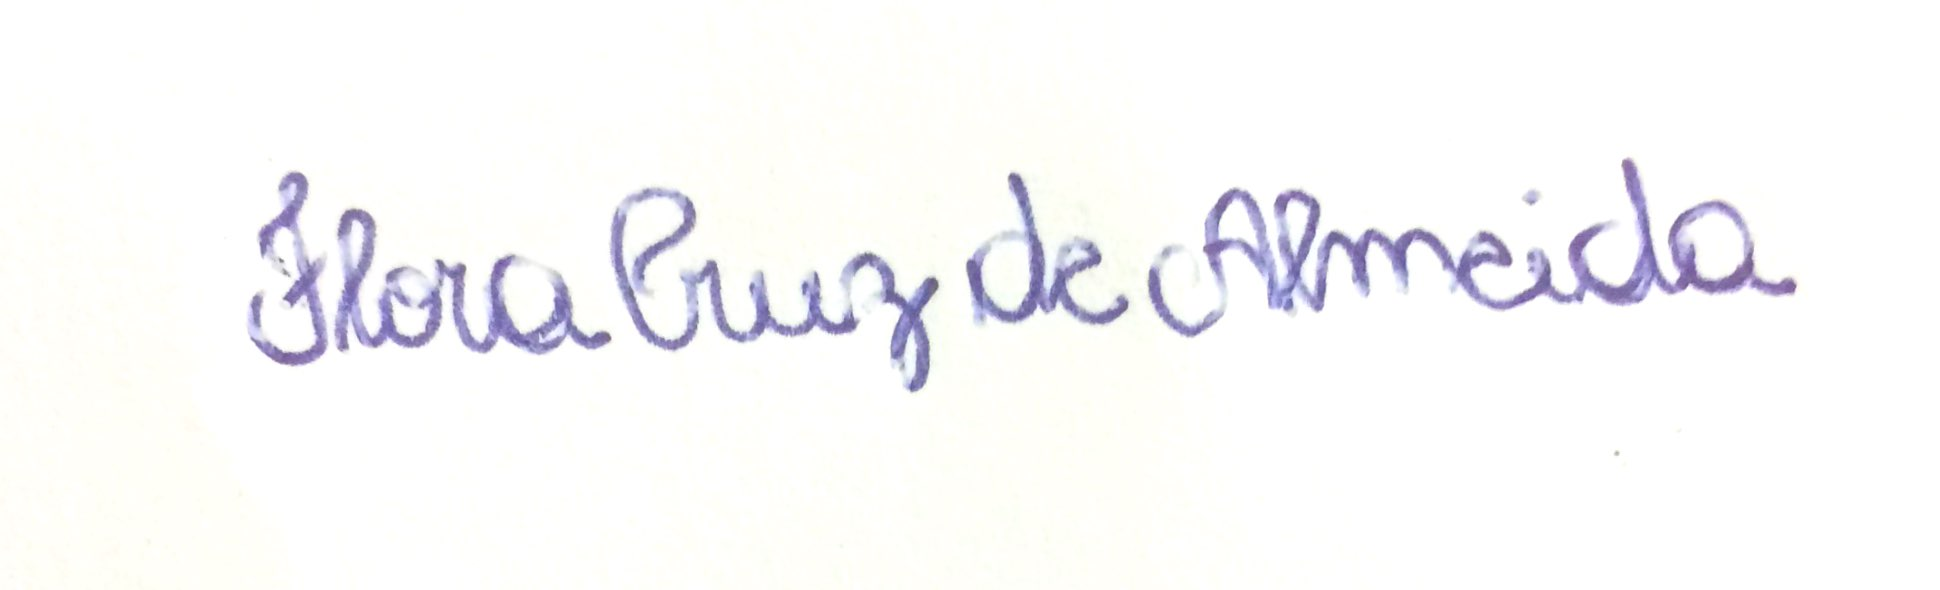 Flora Cruz de Almeida